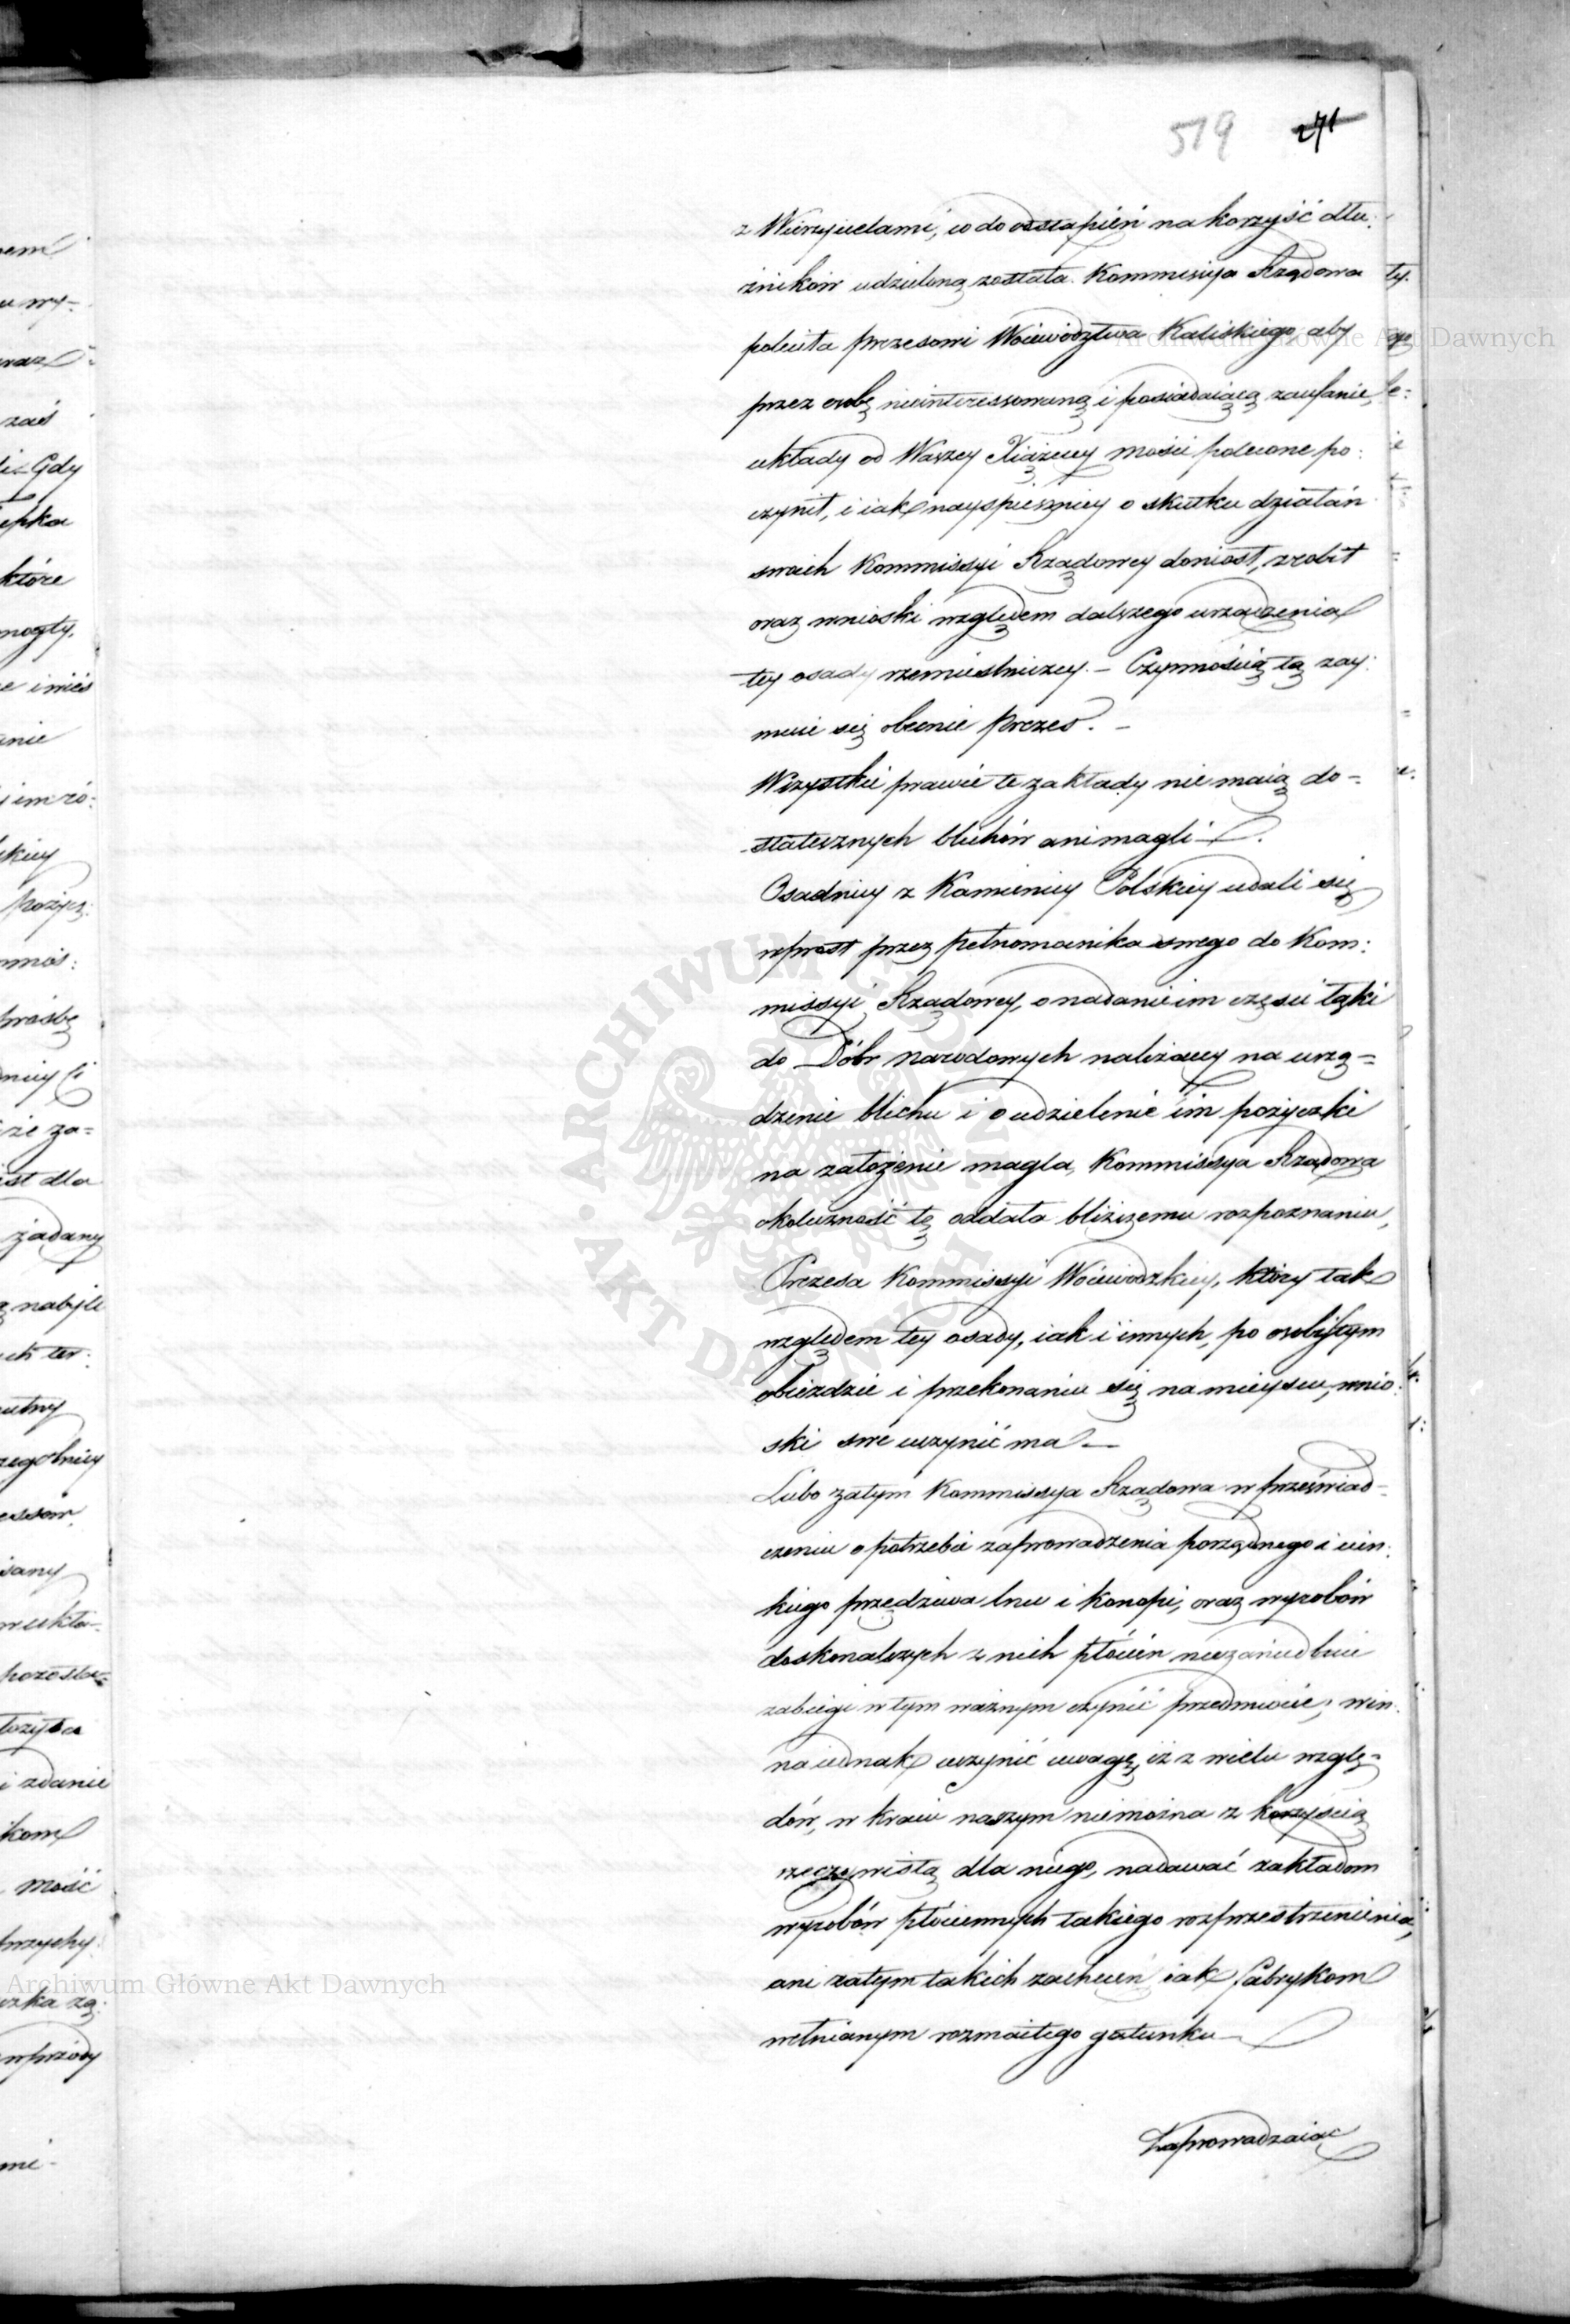 519 271
z Wierzycielami, co do odstąpień na korzyść dłu:
żników udzieloną została. Kommissya Rządowa
poleciła Prezesowi Woiewództwa Kaliskiego, aby
przez osobę nieinteressowaną i posiadaiącą zaufanie,
układy od Waszey Xiążęcey Mości polecone po:
czynił, i iak nayspieszniey o skutku działań
swoich Kommissyi Rządowey doniosł, zrobił
oraz wnioski względem dalszego urządzenia
tey osady rzemieślniczey. – Czynnością tą zay:
muie się obecnie Prezes. –
Wszystkie prawie te zakłady nie maią do=
statecznych blichów ani magli –.
Osadnicy z Kamienicy Polskiey udali się
wprost przez pełnomocnika swego do Kom:
missyi Rządowey, o nadanie im części łąki
do Dóbr narodowych należącey na urzą=
dzenie blichu i o udzielenie im pożyczki
na założenie magla, Kommissya Rządowa
okoliczność tę oddała bliższemu rozpoznaniu,
Prezesa Kommissyi Woiewódzkiey, który tak
względem tey osady, iak i innych, po osobistym
obieździe i przekonaniu się na mieyscu, wnio:
ski swe uczynić ma –
Lubo zatym Kommissya Rządowa w przeświad=
czeniu o potrzebie zaprowadzenia porządnego i cien:
kiego przędziwa lnu i konopi, oraz wyrobów
doskonalszych z nich płócien niezaniedbuie
zabiegi w tym ważnym czynić przedmiocie; win:
na iednak uczynić uwagę, iż z wielu wzglę=
dów, w kraiu naszym niemożna z korzyścią
rzeczywistą dla niego, nadawać zakładom
wyrobów płóciennych takiego rozprzestrzenienia,
ani zatym takich zachęceń iak fabrykom
wełnianym rozmaitego gatunku –
Zaprowadzaiąc
Archiwum Główne Akt Dawnych
Archiwum Główne Akt Dawnych
ARCHIWUM GŁÓWNE AKT DAWNYCH